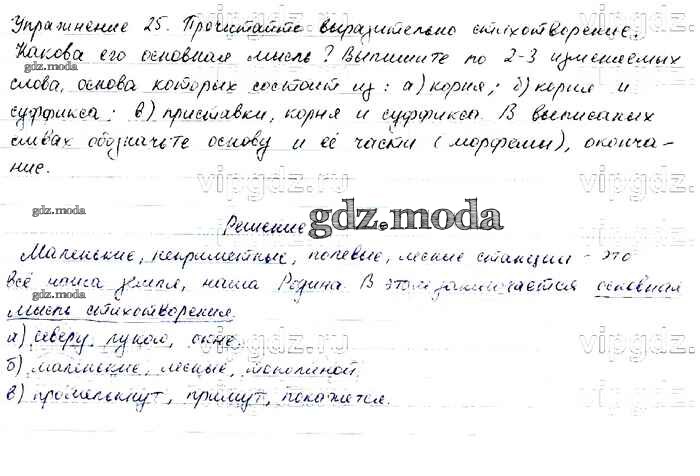 Упражнение 25. Прочитайте выразительно стихотворение.
Какова его основная мысль? Выпишите по 2-3 изменяемых
gdz.moda
слова, основа которых состоит из: а) корня; б) корня и
суффикса; в) приставки, корня и суффикса. В выписаных
gdz.moda
словах обозначьте основу и её части (морфемы), оконча-
ние.
vipgdz.ru
gdz.moda
Решение
gdz.moda
Маленские, неприметные, полевые, лесные станции - это
всё наша земля, наша Родина. В этом заключается основная
gdz.moda
мысль стихотворения.
а) северу, лугом, окне.
vipgdz.ru
б) маленские, лесные,
в) промелькнут, примут, покажется.
vipgdz.ru